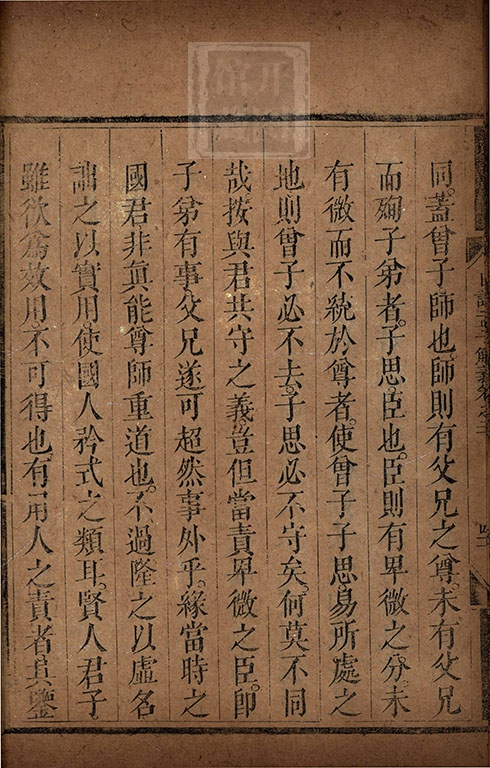 同。蓋曾子師也。師則有父兄之尊。未有父兄
而殉子弟者。子思。臣也。臣則有卑微之分。未
有微而不統於尊者。使曾子子思易所處之
地。則曾子必不去。子思必不守矣。何莫不同
哉。按與君共守之義。豈但當責卑微之臣。即
子弟有事。父兄遂可超然事外乎。緣當時之
國君非真能尊師重道也。不過隆之以虛名
詘之以實用。使國人矜式之類耳。賢人君子
雖欲為效用。不可得也。有用人之責者其鑒
日講 解義卷之